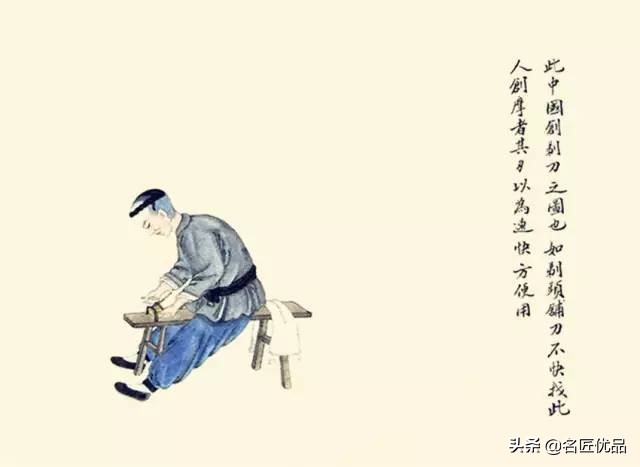 此中國創剃刀之圖也如剃頭鋪刀不快找此
人創摩者其刀以為速快方便用
头条 @名匠优品